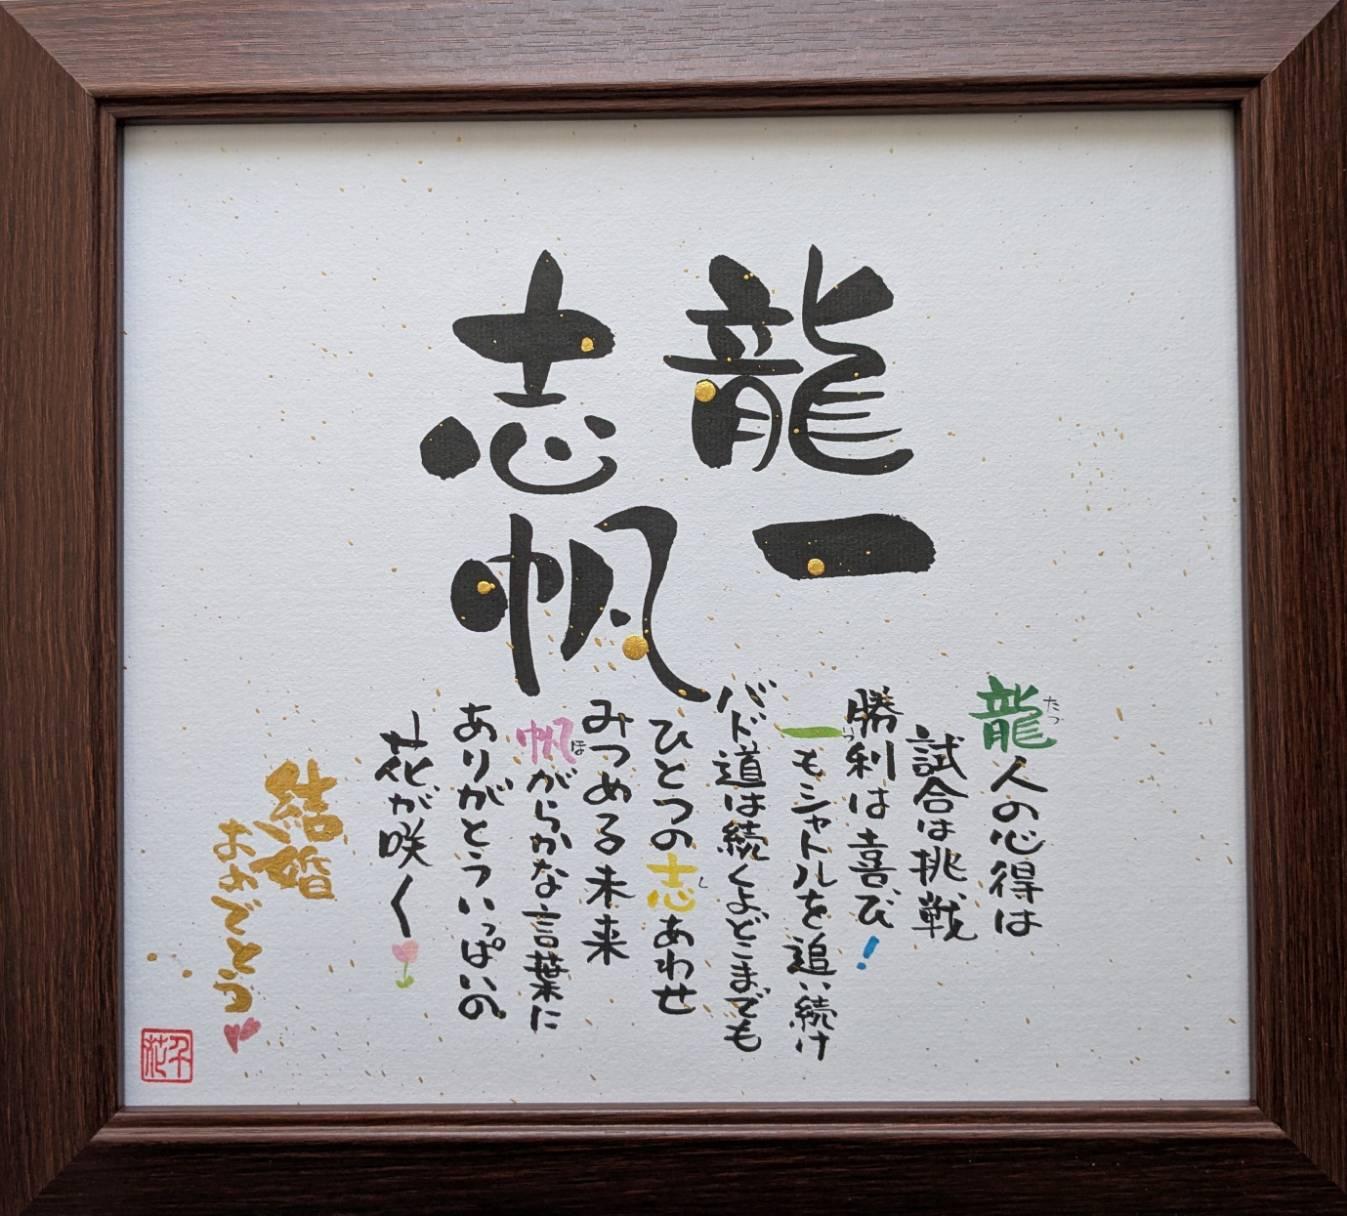 龍一
志帆
龍人の心得は
たつ
試合は挑戦
勝利は喜び!
一もシャトルを追い続け
いつ
バド道は続くよどこまでも
ひとつの志あわせ
し
みつめる未来
帆がらかな言葉に
ほ
ありがとういっぱいの
花が咲く
結婚
おめでとう